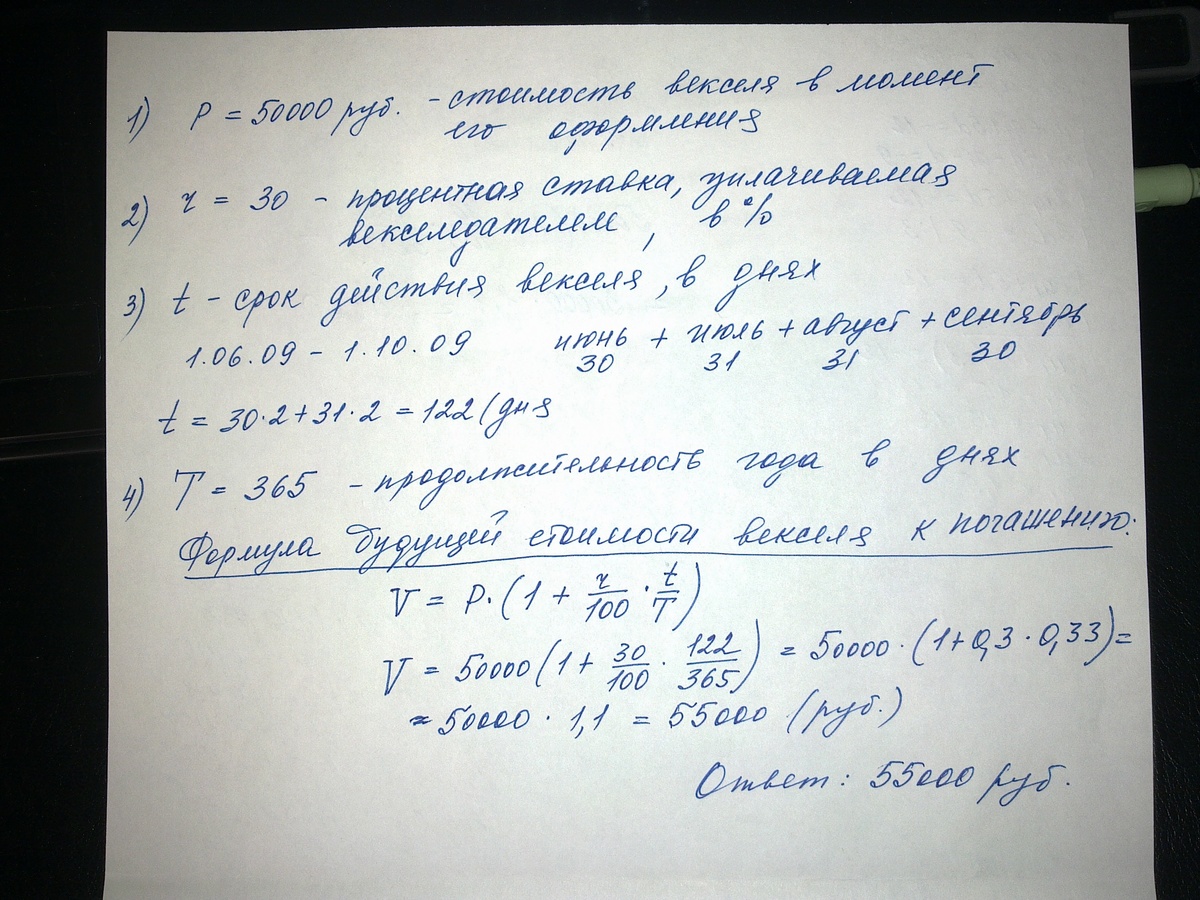 1) P = 50000 руб. - стоимость векселя в момент
его оформления
2) r = 30 - процентная ставка, уплачиваемая
векселедателем, в %
3) t - срок действия векселя, в днях
1.06.09 - 1.10.09 июнь + июль + август + сентябрь
30 31 31 30
t = 30·2+31·2 = 122 (дня
4) T = 365 - продолжительность года в днях
Формула будущей стоимости векселя к погашению:
V = P·(1 + r/100 · t/T)
V = 50000(1+ 30/100 · 122/365) = 50000·(1+0,3·0,33)=
= 50000 · 1,1 = 55000 (руб.)
Ответ: 55000 руб.